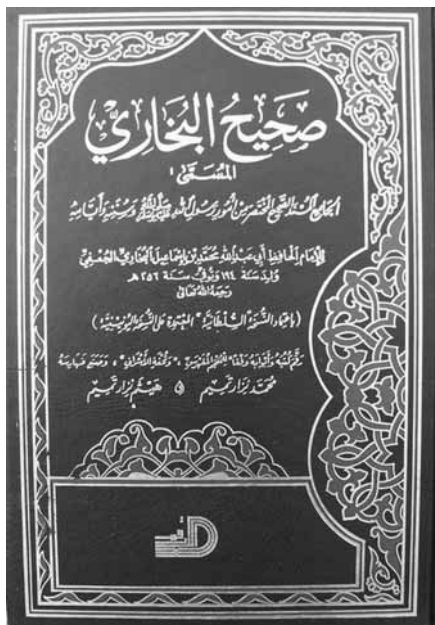 صَحِيحُ البُخَارِيِّ
المُسَمَّىٰ:
الجَامِعُ المُسْنَدُ الصَّحِيحُ المُخْتَصَرُ مِنْ أُمُورِ رَسُولِ اللهِ ﷺ وَسُنَنِهِ وَأَيَّامِهِ
لِلإِمَامِ الحَافِظِ أَبِي عَبْدِ اللهِ مُحَمَّدِ بْنِ إِسْمَاعِيلَ البُخَارِيِّ الجُعْفِيِّ
وُلِدَ سَنَةَ ١٩٤ وَتُوُفِّيَ سَنَةَ ٢٥٦ هـ
رَحِمَهُ اللهُ تَعَالَىٰ
(بِاعْتِمَادِ النُّسْخَةِ "السُّلْطَانِيَّةِ" المُعْتَمَدَةِ عَلَى النُّسْخَةِ اليُونِينِيَّةِ)
رَقَّمَ كُتُبَهُ وَأَبْوَابَهُ وَفْقًا "لِلْمُعْجَمِ المُفَهْرَسِ"، وَ"تُحْفَةِ الأَشْرَافِ"، وَصَنَعَ فَهَارِسَهُ
مُحَمَّد نِزَار تَمِيم و هَيْثَم نِزَار تَمِيم